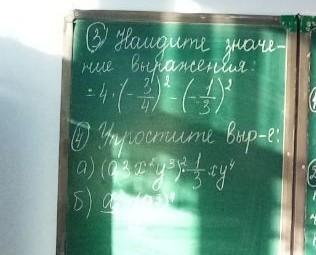 ③ Найдите значе-
ние выражения:
-4·(-3/4)² - (-1/3)²
④ Упростите выр-е:
а) (0,3x²y³)²·1/3 xy⁴
б)